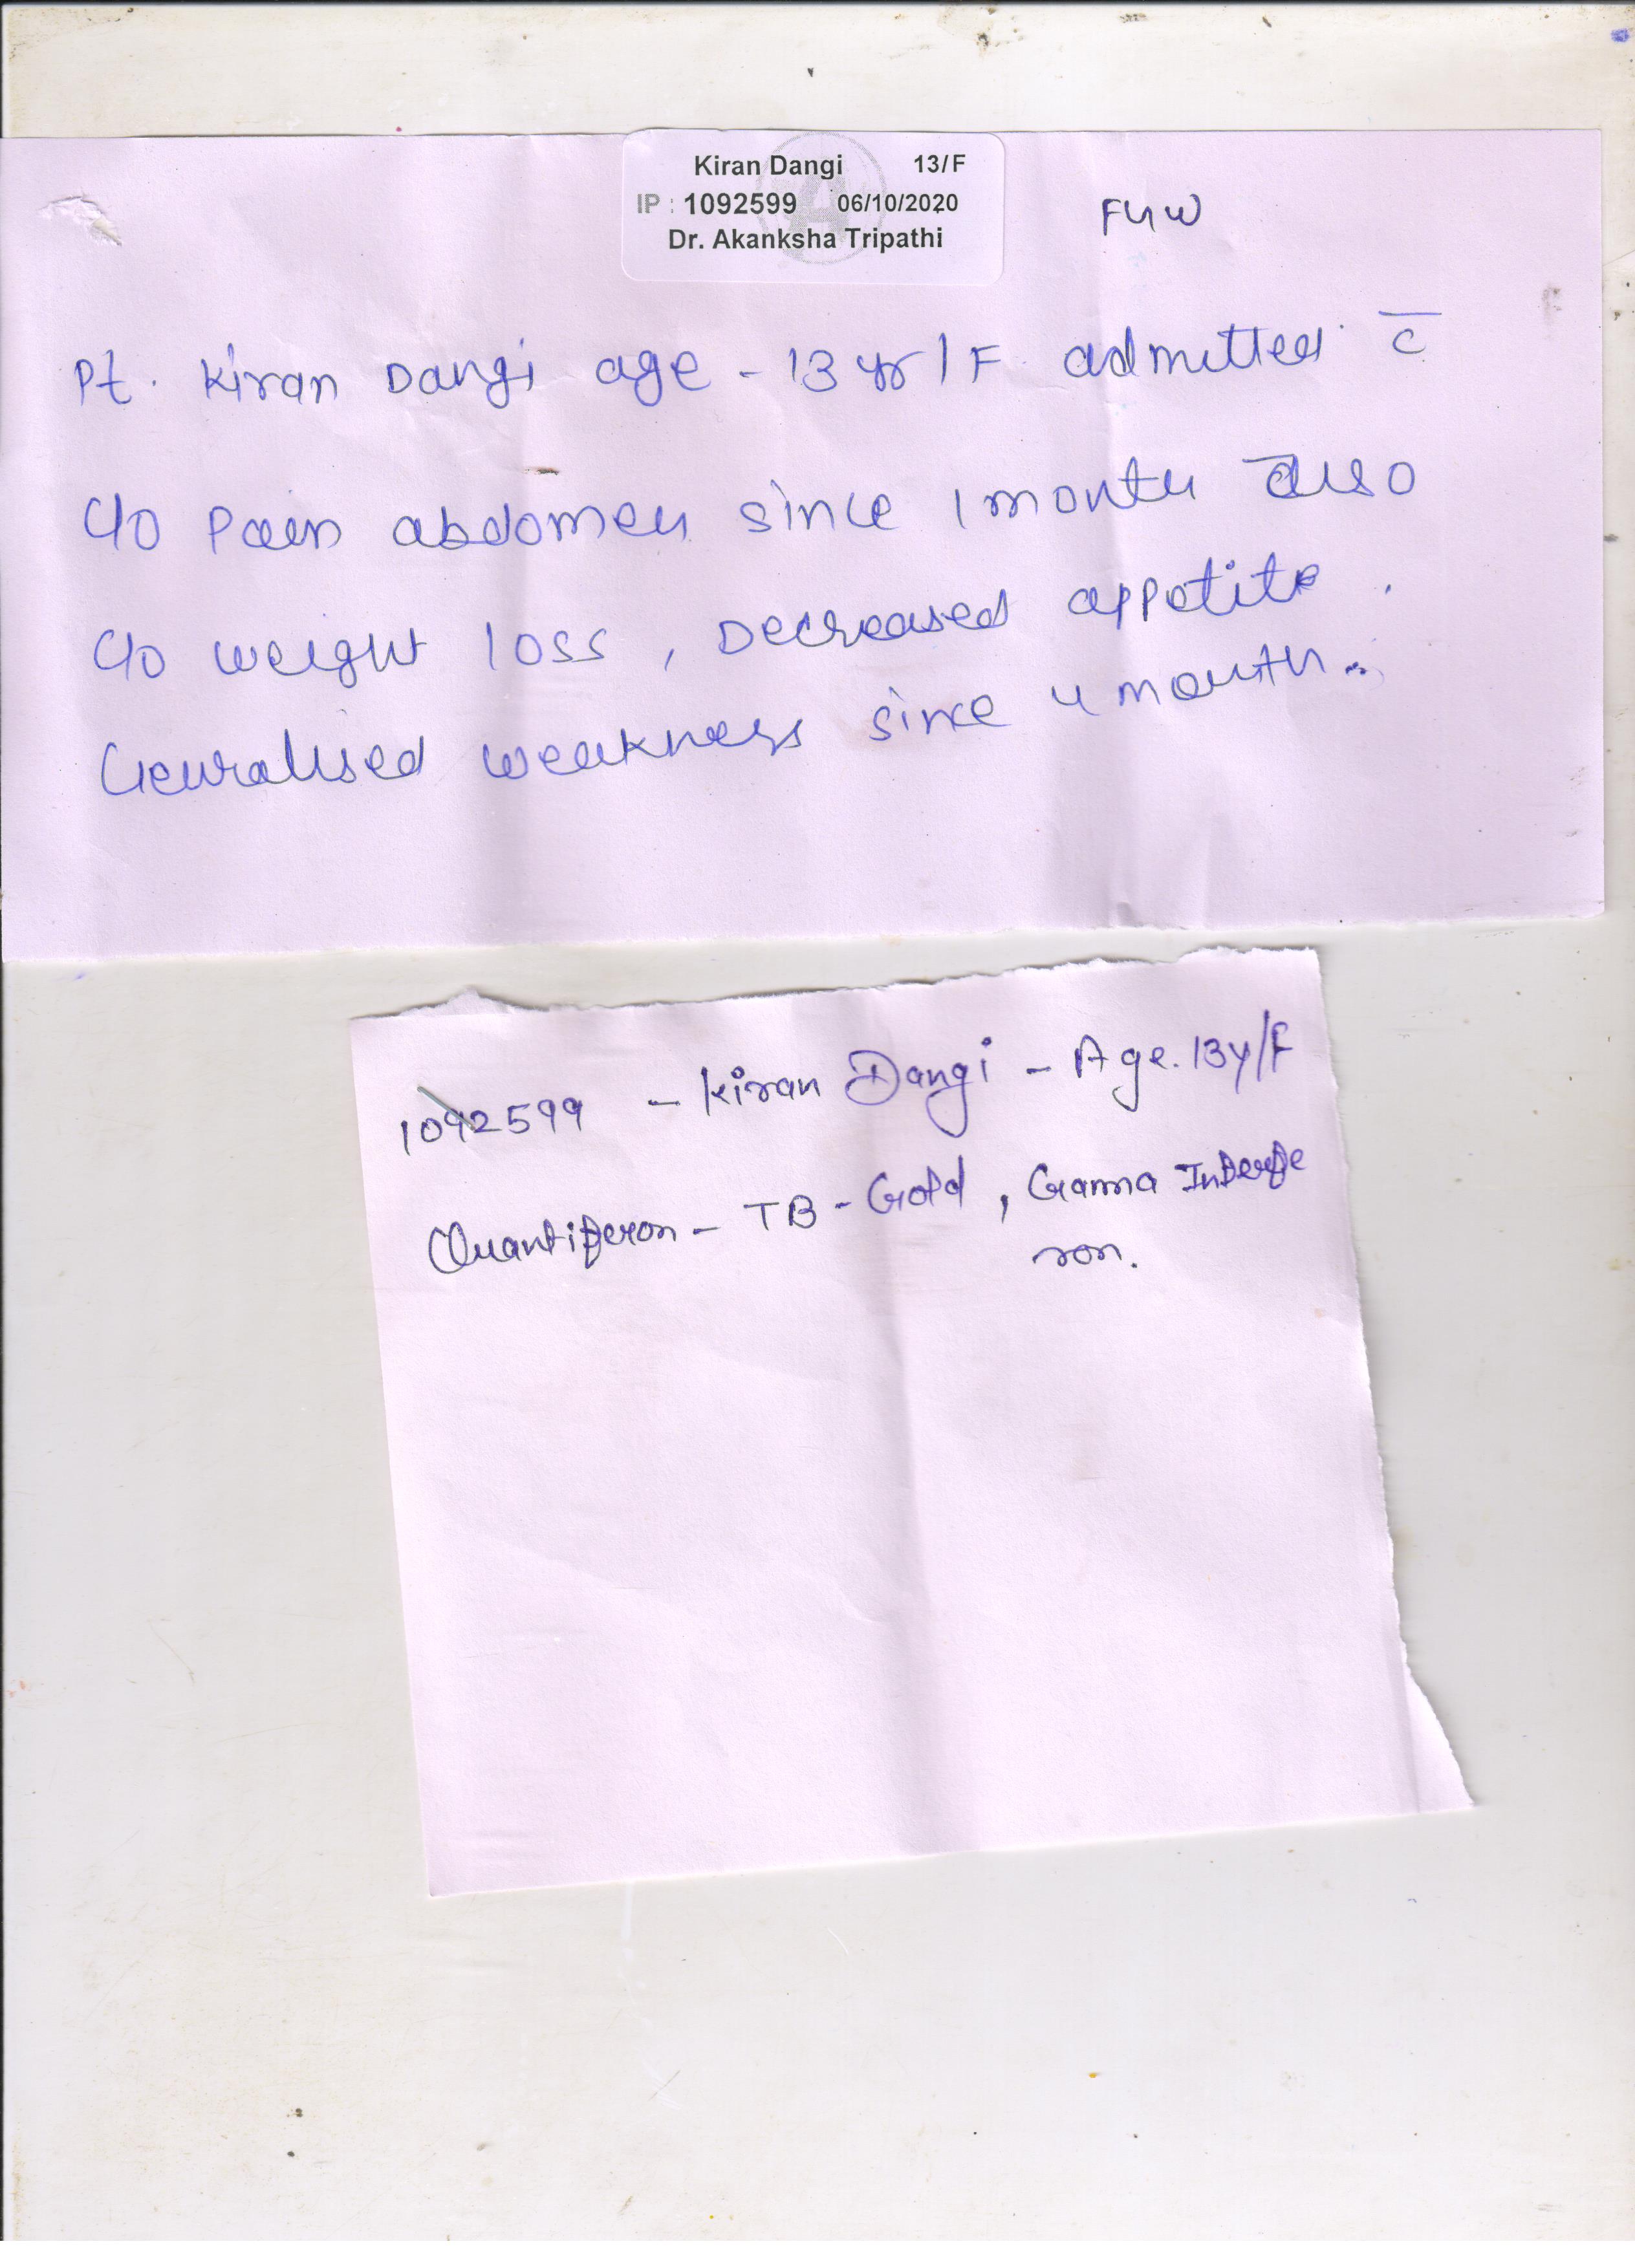 Kiran Dangi 13/F
IP : 1092599 06/10/2020
Dr. Akanksha Tripathi
Pt. Kiran Dangi age - 13 yr/F admitted c̄
c/o Pain abdomen since 1 month also
c/o weight loss, Decreased appetite.
Generalised weakness since 4 month.
1092599 - Kiran Dangi - Age. 13y/F
Quantiferon - TB - Gold, Gamma Interfe
ron.